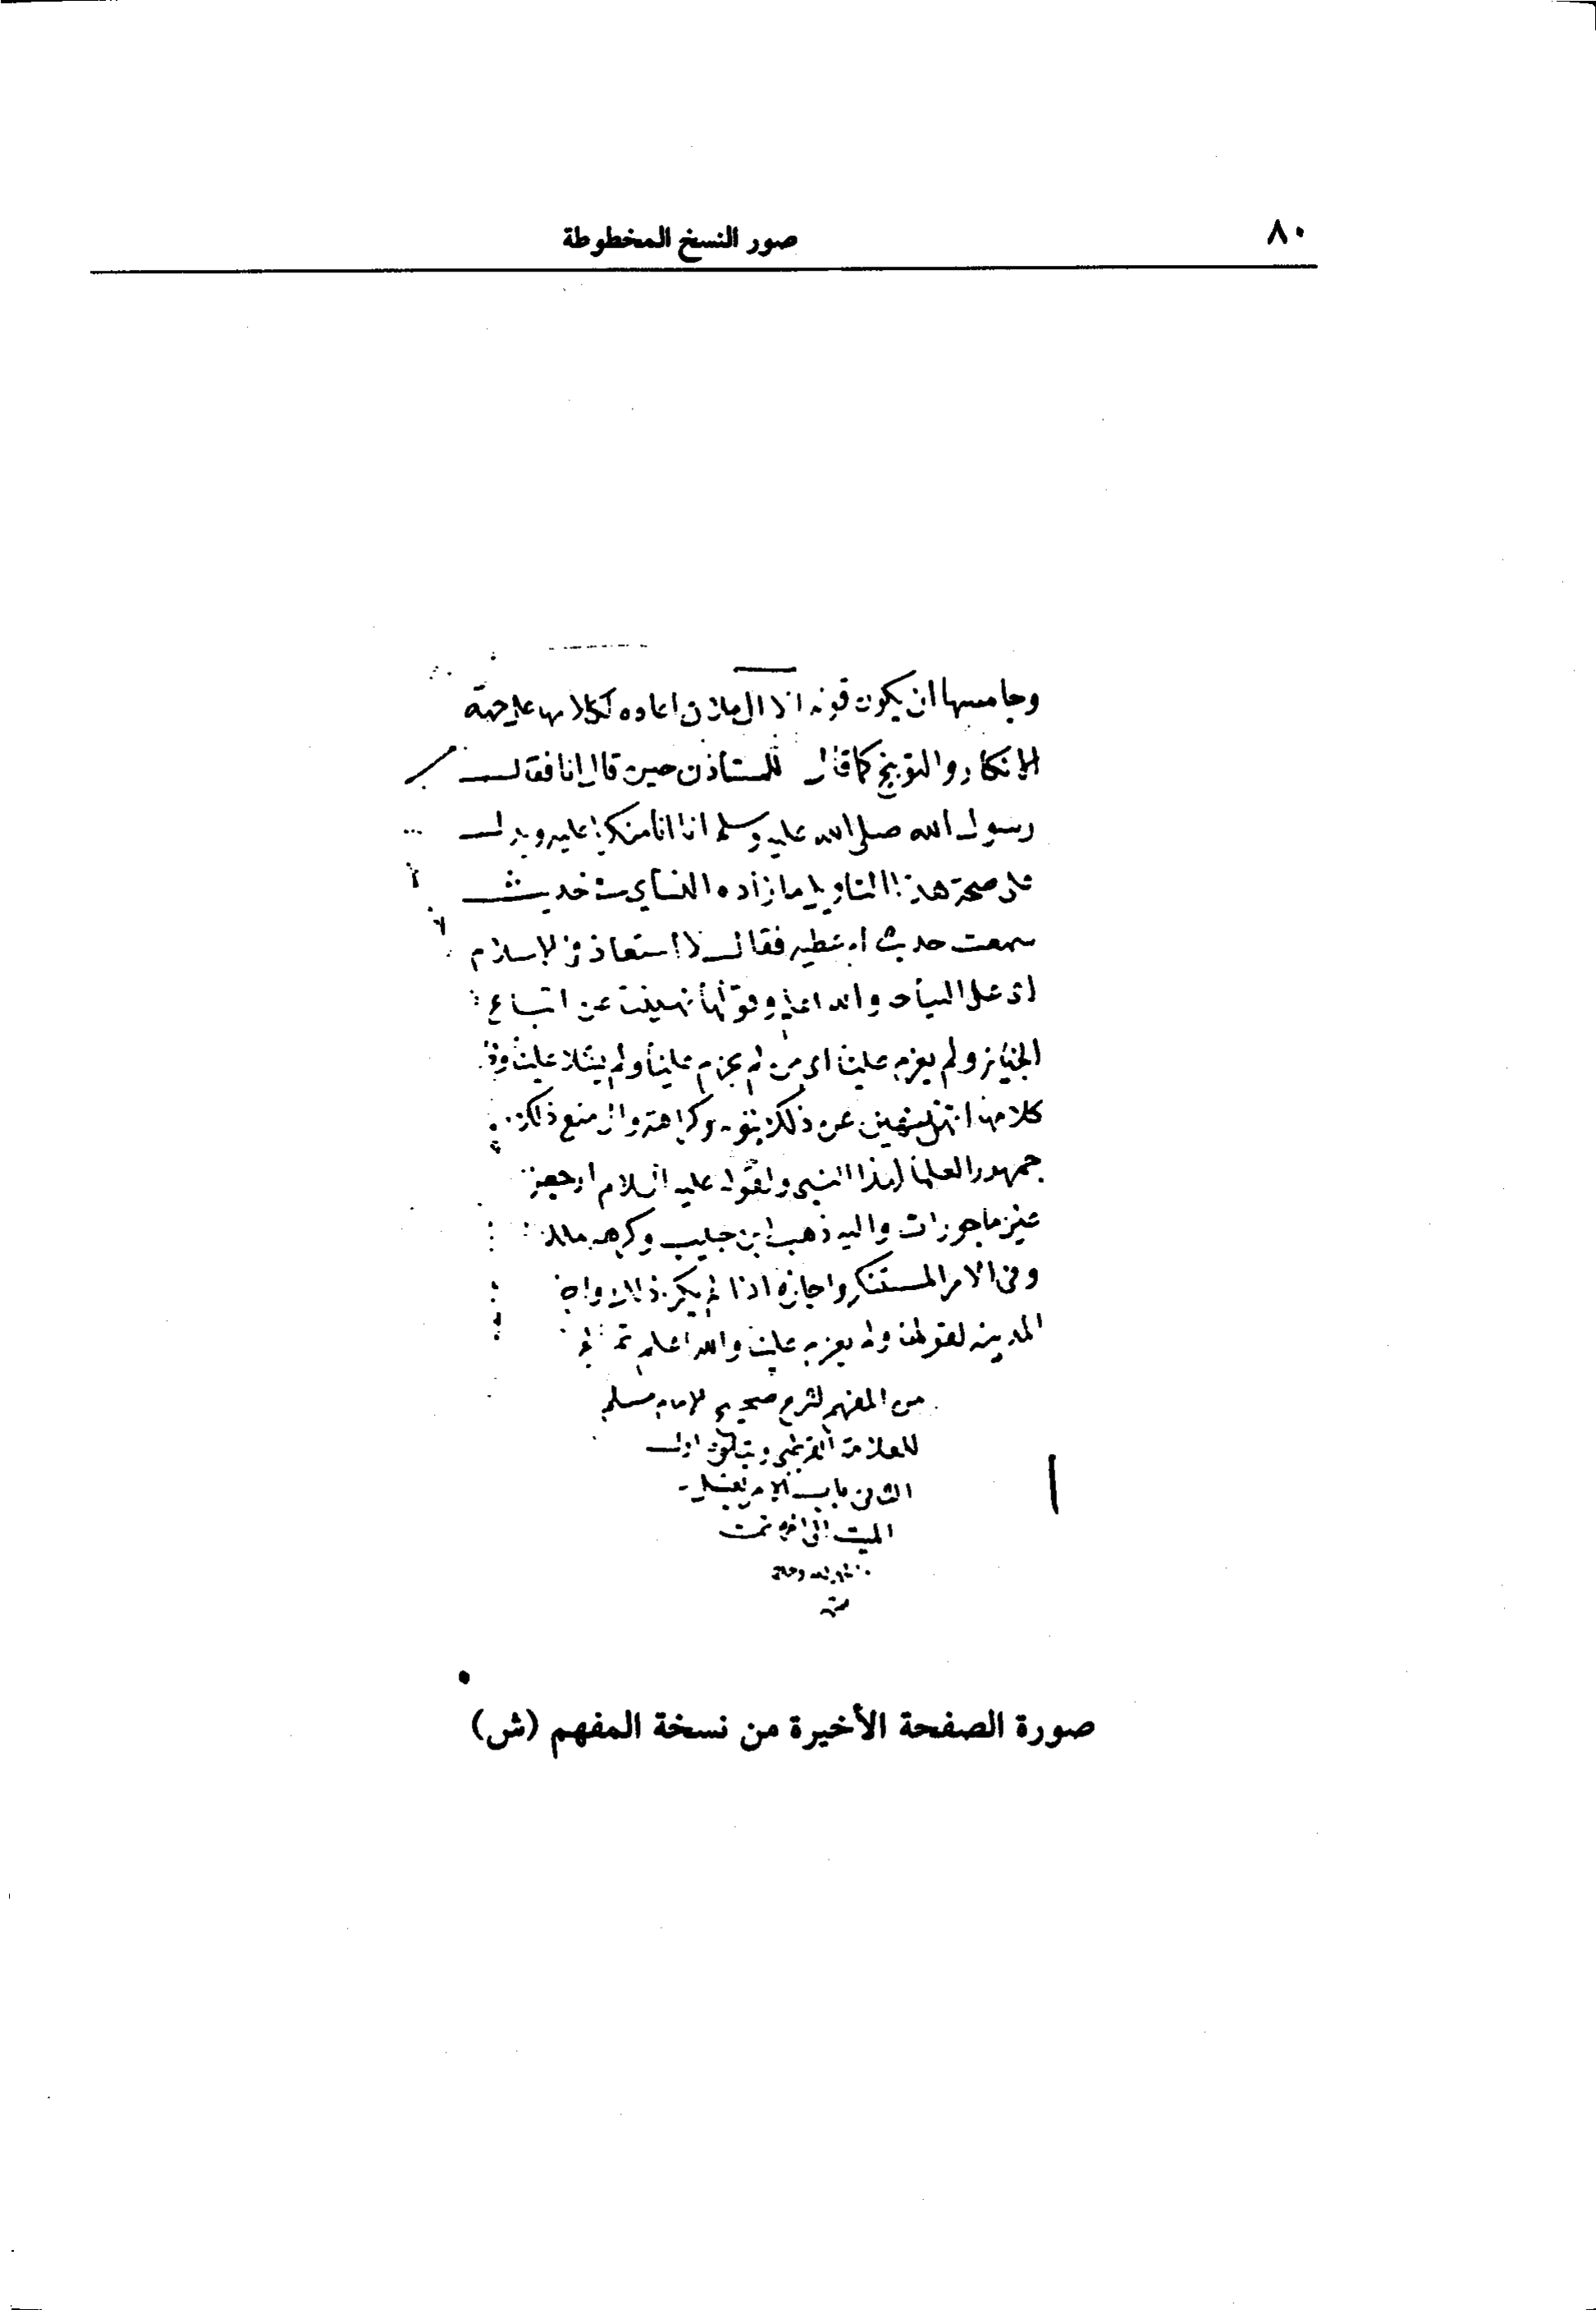 ٨٠
صور النسخ المخطوطة
وخامسها ان يكون قوله الا ال فلان اعاده لكلامها على جهة
الانكار والتوبيخ كما قال للمستاذن حين قال انا فقال
رسول الله صلى الله عليه وسلم انا انا منكرا عليه ويدل
على صحة هذا التاويل ما زاده النساي حديث
حديث فقال لا اسعاد في الاسلام
اى على النياحة والله اعلم وقولها نهينا عن اتباع
الجنايز ولم يعزم علينا اى لم يحرم علينا ولم يشدد علينا
كلامها عن ذلك كراهة منع ذلك
جمهور العلما لهذا النهي ولقوله عليه السلام ارجعن
غير ماجورات واليه ذهب ابن حبيب وكرهه مالك
وفى الامر المستنكر واجازه اذا لم يكن ذلك
المدينه لقولها ولم يعزم علينا والله اعلم تم
من المفهم لشرح صحيح الامام مسلم
للعلامة القرطبي ويتلوه اول
الثاني باب الامر بغسل
الميت الى اخره تمت
صورة الصفحة الأخيرة من نسخة المفهم (ش)